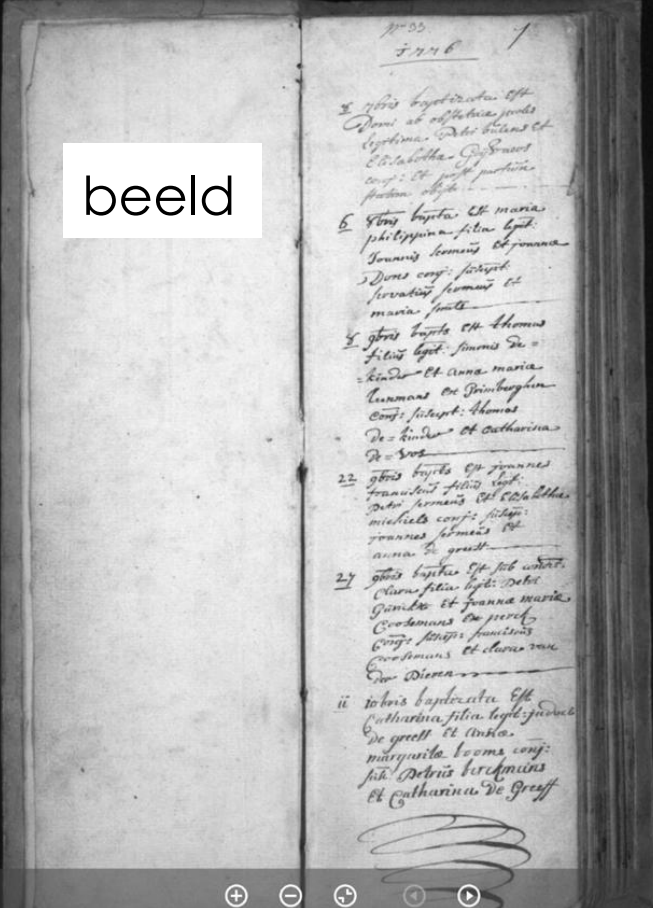 beeld
N° 33
1
1776
8 7bris baptizata Est
Domi ab obstetrice proles
legitima Petri Et
Elisabethæ
conj: Et post partum
obiit
6 8bris bapta Est maria
philippina filia legit:
Joannis sermeus Et joannæ
Dons conj: suscept:
servatius sermeus Et
maria smets
8 9bris bapts Est thomas
filius legit: simonis de=
=kinder Et annæ mariæ
Lunmans Ex Grimberghen
conj: suscept: thomas
de=kinder Et catharina
de=Vos
22 9bris bapts Est joannes
franciscus filius legit:
Petri sermeus Et Elisabethæ
michiels conj: suscep:
joannes sermeus Et
anna de greeff
27 9bris bapta Est sub
Clara filia legit: Petri
Et joannæ mariæ
Coosemans Ex perck
Conj: suscep: franciscus
Coosemans Et clara van
der Dieren
ii 10bris baptizata Est
Catharina filia legit: judoci
de greeff Et annæ
margaritæ booms conj:
sub: Petrus berckmans
Et Catharina De Greeff